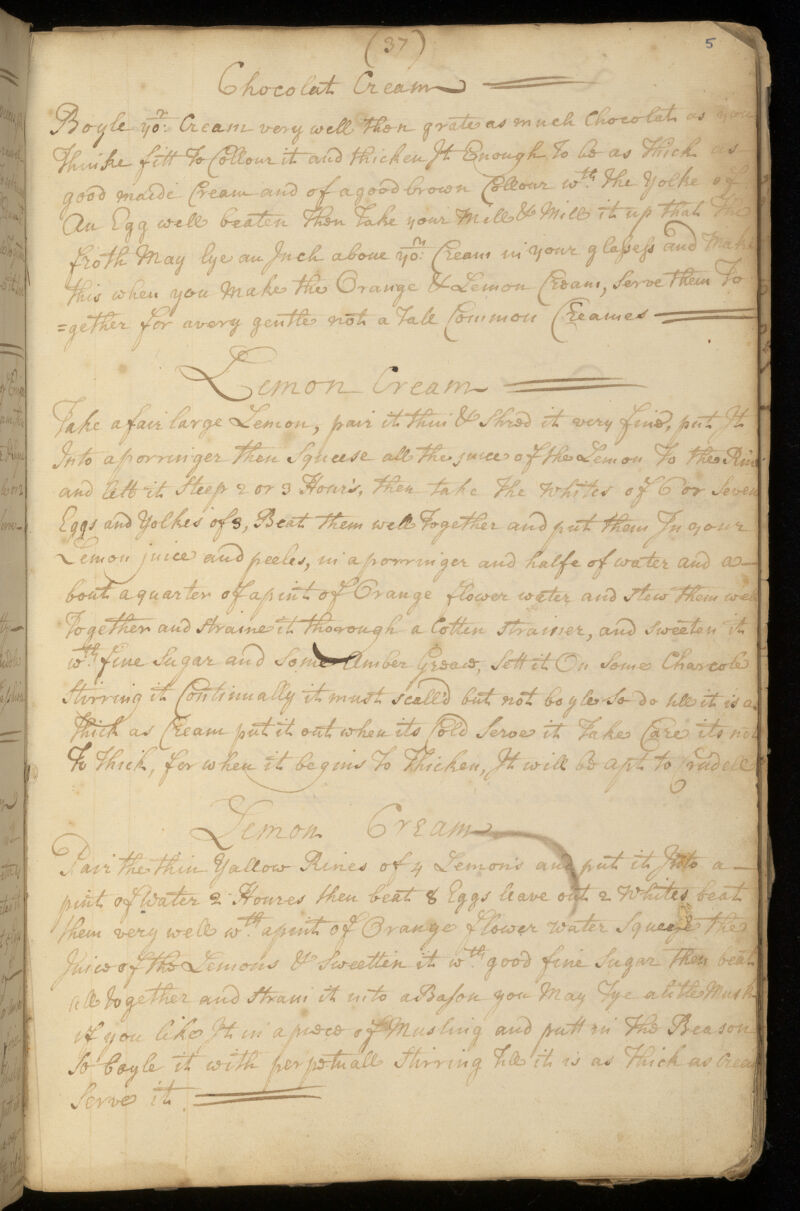 (37) 5
Chocolat Cream
Boyle yor: Cream very well then grate as much Chocolat as you
thinke fitt To Collour it and thicken Jt Enough To be as thick as
good maide Cream and of a good brown Collour wth the Yolke of
An Egg well beaten then Take your Mill & Mill it up that the
froth May lye an Jnch aboue yor: Cream in your glasess and make
this when you make the Orange & Lemon Cream, Serve them To
=gether for avery gentle not a Tall Common Creames
Lemon Cream
Take a fair large Lemon, pair it thin & Shred it very fine, put Jt
Jnto a porringer then Squeese all the juice of the Lemon To the Rine
and lett it Steep 2 or 3 Hours, then take the whites of 6 or Seven
Eggs and Yolkes of 3, Beat them well Together and put them Jn your
Lemon juice and peeles, in a porringer and halfe of water and a-
bout a quarter of a pint of Orange flower water and stew them well
Together and straine it thorough a Cotten strainer, and sweeten it
wth fine Sugar and Some Amber Greace, Sett it On Some Charcole
Stirring it Continually it must scall'd but not boyle So do till it is as
thick as Cream put it out when its Cold Serve it Take Care its not
To thick, for when it begins To Thicken, Jt will be apt to Crudell
Lemon Cream
Pair the thin Yallow Rines of 4 Lemons and put it Jnto a
pint of Water 2 Houres then beat 8 Eggs leave out 2 Whites beat
them very well wth a pint of Orange flower water Squeeze the
Juice of the Lemons & Sweetten it wth good fine Sugar then beat
all together and strain it into a Bason you May Tye a litle Musk
if you like Jt in a piece of Musling and putt in the Beason
So boyle it with perpetuall Stirring till it is as thick as Cream
Serve it.